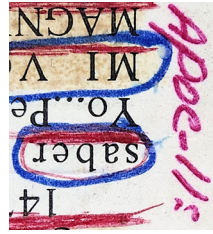 saber
Yo..Pe
MI V
MAGN
Apoc-11: